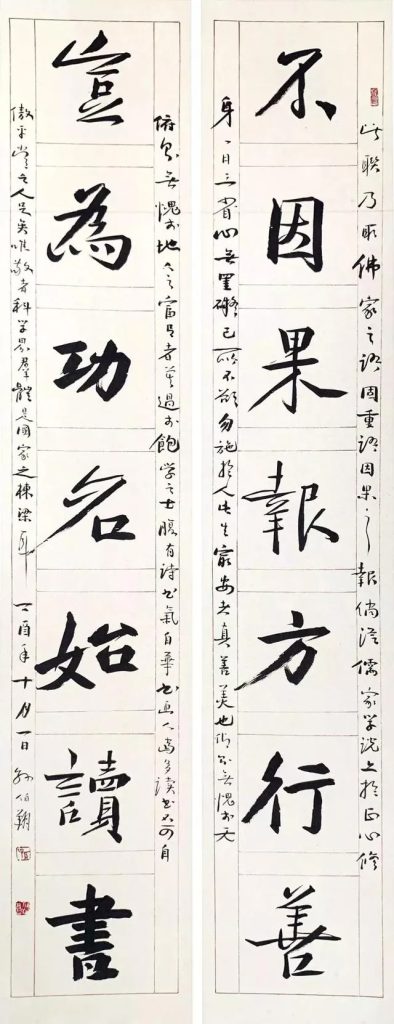 此聯乃取佛家之語因重語因果之報倘從儒家學説上於正心修
不因果報方行善
身一日三省心無罣礙己所不欲勿施於人此生最安者真善美也仰則無愧於天
俯則無愧於地今之富貴者莫過於飽學之士腹有詩書氣自華書画人當多讀書不可自
豈為功名始讀書
傲之人足矣唯敬者科学界羣體是國家之棟梁耳丁酉年十月一日孙伯翔